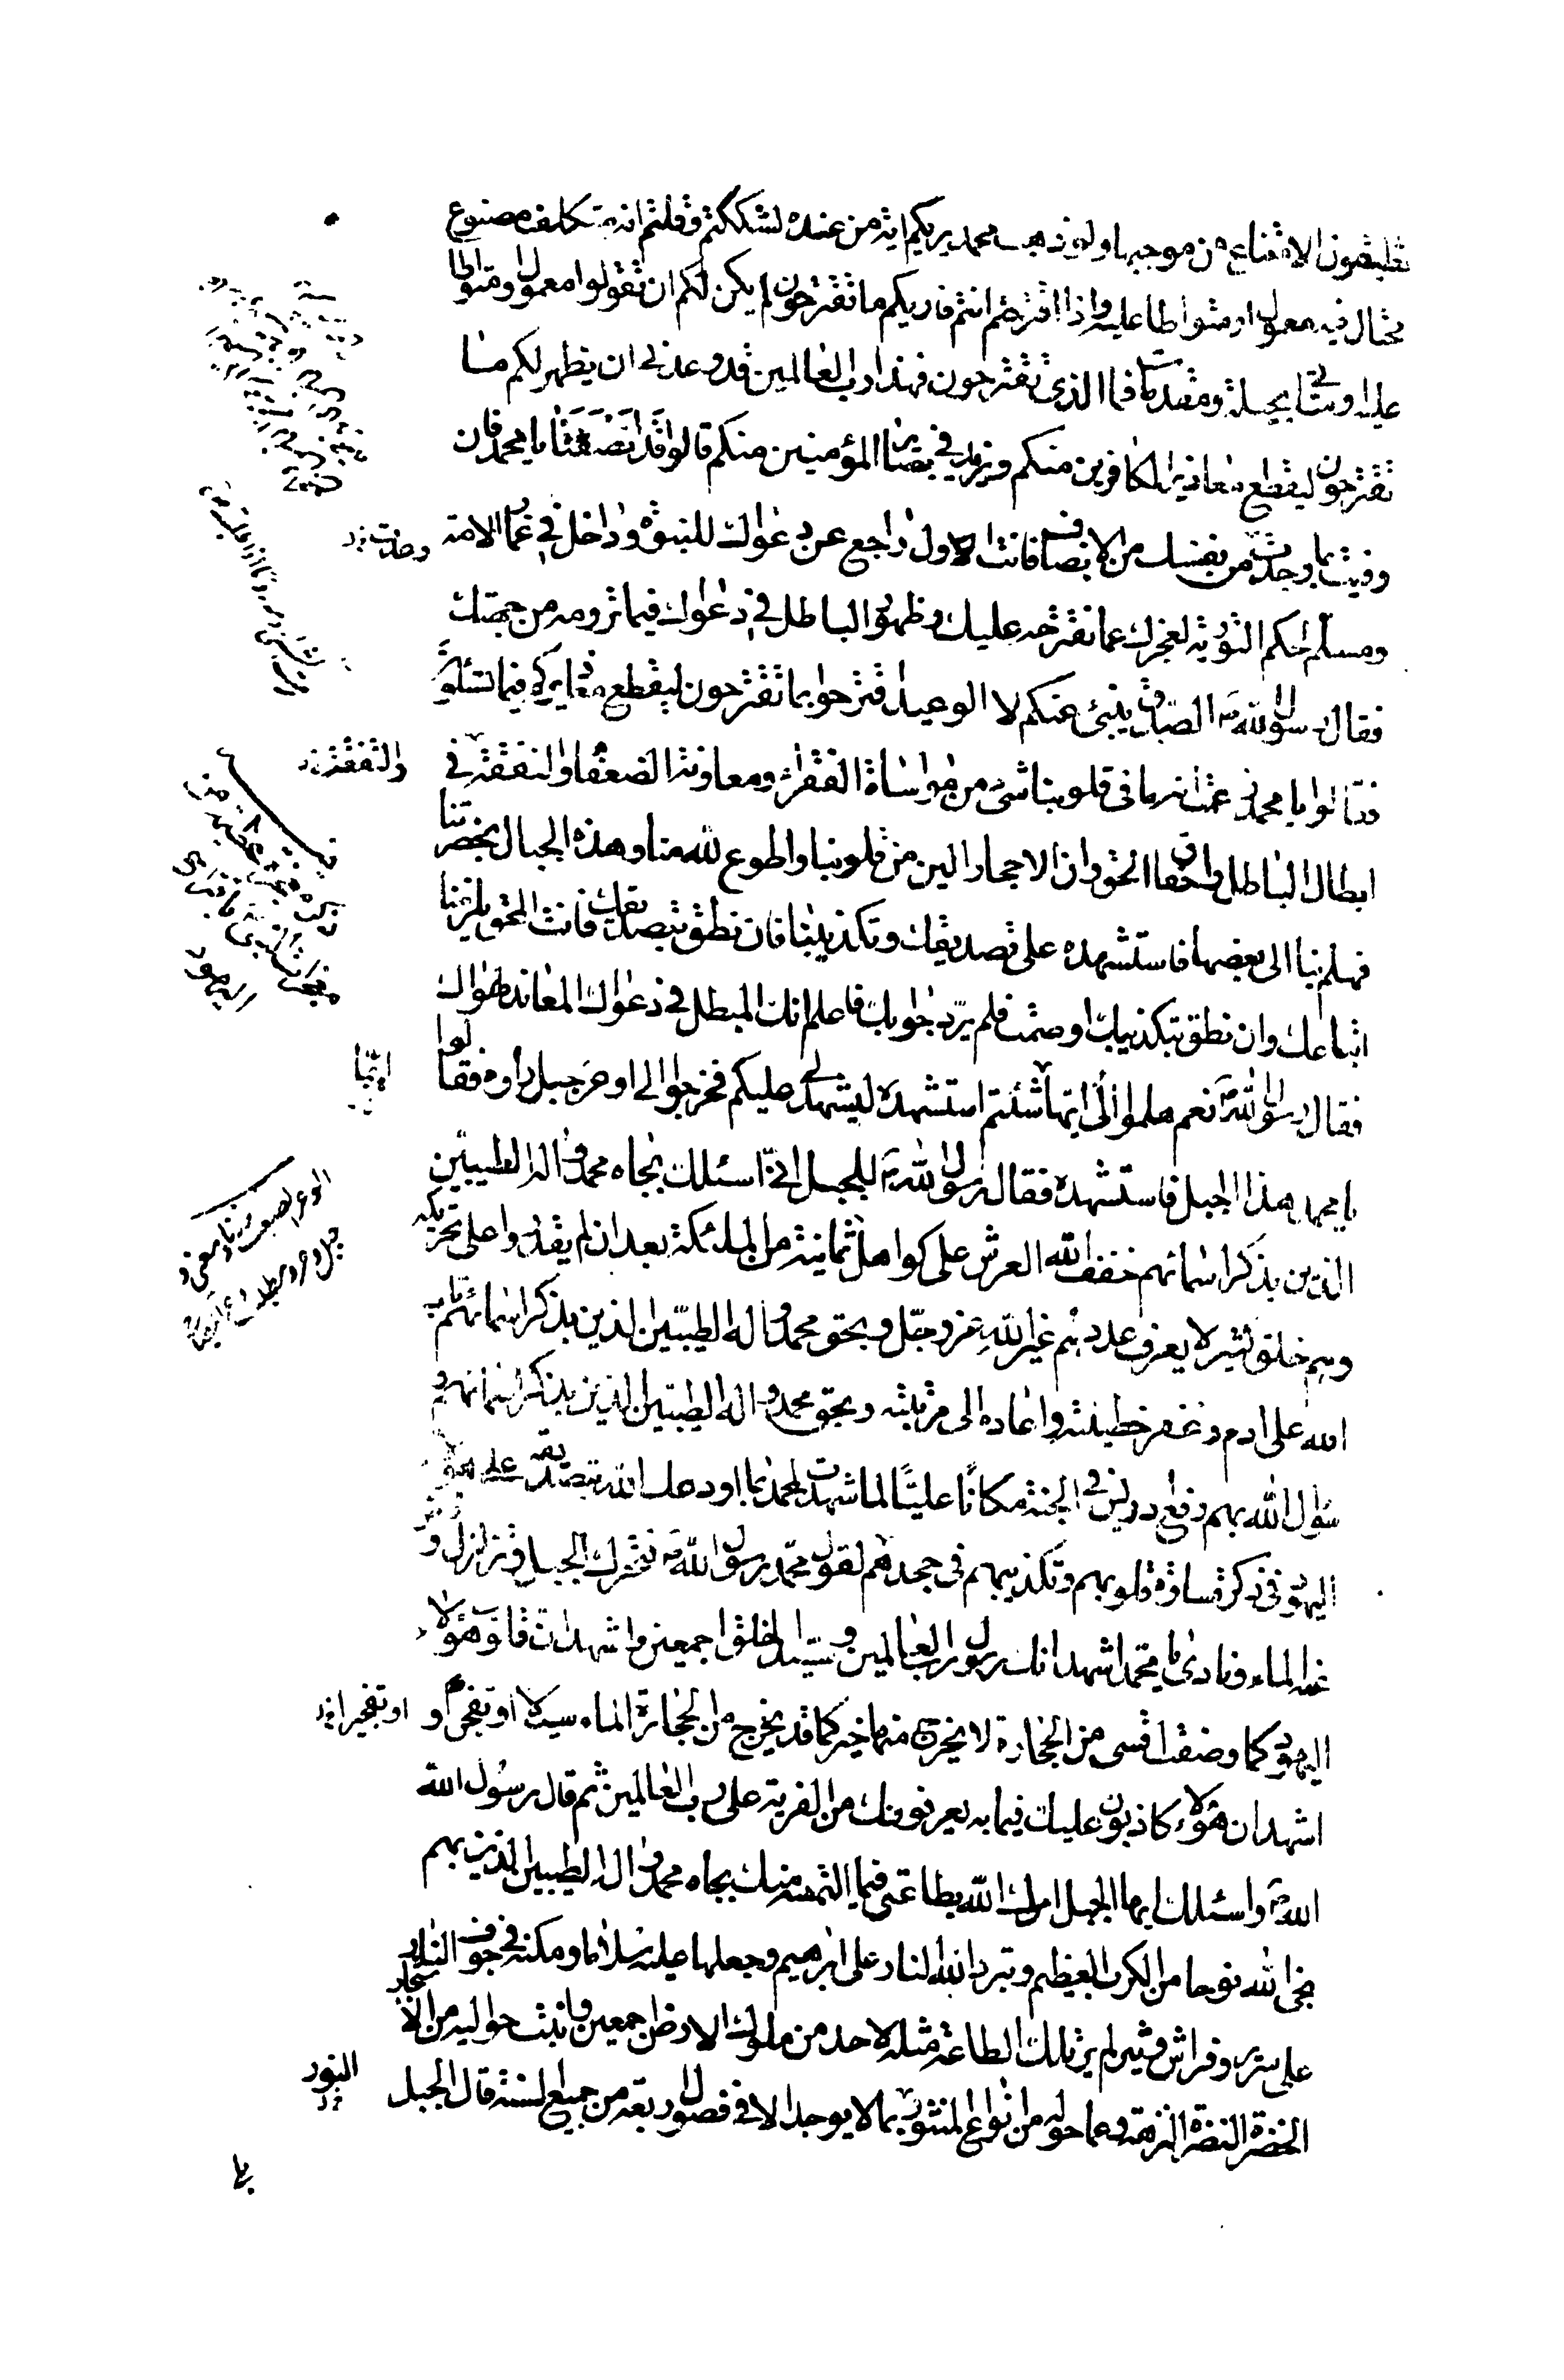 تطيقون الامتناع من موجبها ولو ذهب محمد يريكم اية من عنده لشككتم وقلتم انه متكلف مصنوع
محتال فيه معمول او متواطا عليه واذا اقترحتم انتم فاريكم ما تقترحون لم يكن لكم ان تقولوا معمول او متواطا
عليه او متاتى بحيلة ومقدمات فما الذي تقترحون فهذا رب العالمين قد وعدني ان يظهر لكم ما
تقترحون ليقطع معاذير الكافرين منكم ويزيد في بصائر المؤمنين منكم قالوا قد انصفتنا يا محمد فان
وفيت بما وجدت من نفسك من الانصاف فانت الاول راجع عن دعواك للنبوة وداخل في غمار الامة
ومسلم لحكم التورية لعجزك عما نقترحه عليك وظهور الباطل في دعواك فيما ترومه من جهتك
فقال رسول الله ص الصدق ينبئ عنكم لا الوعيد اقترحوا بما تقترحون ليقطع معاذيركم فيما تسئلون
فقالوا يا محمد زعمت انه ما في قلوبنا شئ من مواساة الفقراء ومعاونة الضعفا والنفقة في
ابطال الباطل واحقاق الحق وان الاحجار الين من قلوبنا واطوع لله منا وهذه الجبال بحضرتنا
فهلم بنا الى بعضها فاستشهده على تصديقك وتكذيبنا فان نطق بتصديقك فانت المحق يلزمنا
اتباعك وان نطق بتكذيبك او صمت فلم يرد جوابك فاعلم انك المبطل في دعواك المعاند لهواك
فقال رسول الله ص نعم هلموا الى ايها شئتم استشهده ليشهد لي عليكم فخرجوا الى اوعر جبل راوه فقالوا
يا محمد هذا الجبل فاستشهده فقال رسول الله ص للجبل اني اسئلك بجاه محمد واله الطيبين
الذين بذكر اسمائهم خفف الله العرش على كواهل ثمانية من الملئكة بعد ان لم يقدروا على تحريكه
وهم خلق كثير لا يعرف عددهم غير الله عز وجل وبحق محمد واله الطيبين الذين بذكر اسمائهم تاب
الله على ادم وغفر خطيئته واعاده الى مرتبته وبحق محمد واله الطيبين الذين بذكر اسمائهم و
سؤال الله بهم رفع ادريس في الجنة مكانا عليا لما شهدت لمحمد بما اودعك الله بتصديقه على هؤلاء
اليهود في ذكر قساوة قلوبهم وتكذيبهم في جحدهم لقول محمد رسول الله ص فتحرك الجبل وتزلزل و
عنه الماء ونادى يا محمد اشهد انك رسول رب العالمين وسيد الخلق اجمعين واشهد ان قلوب هؤلاء
اليهود كما وصفت اقسى من الحجارة لا يخرج منها خير كما قد يخرج من الحجارة الماء سيلا او تفجرا و
اشهد ان هؤلاء كاذبون عليك فيما به يعرفونك من الفرية على رب العالمين ثم قال رسول الله
الله ص واسئلك ايها الجبل امرك الله بطاعتي فيما التمسه منك بجاه محمد واله الطيبين الذين بهم
نجى الله نوحا من الكرب العظيم وبرد الله النار على ابرهيم وجعلها عليه سلاما ومكنه في جوف النار
على سرير وفراش وثير لم ير تلك الطاغية مثله لاحد من ملوك الارض اجمعين وانبت حواليه من الاشجار
الخضرة النضرة النزهة وعما حوله من انواع المنثور بما لا يوجد الا في فصول اربعة من جميع السنة قال الجبل
والنفقة
ايها
او تفجيرا
النور